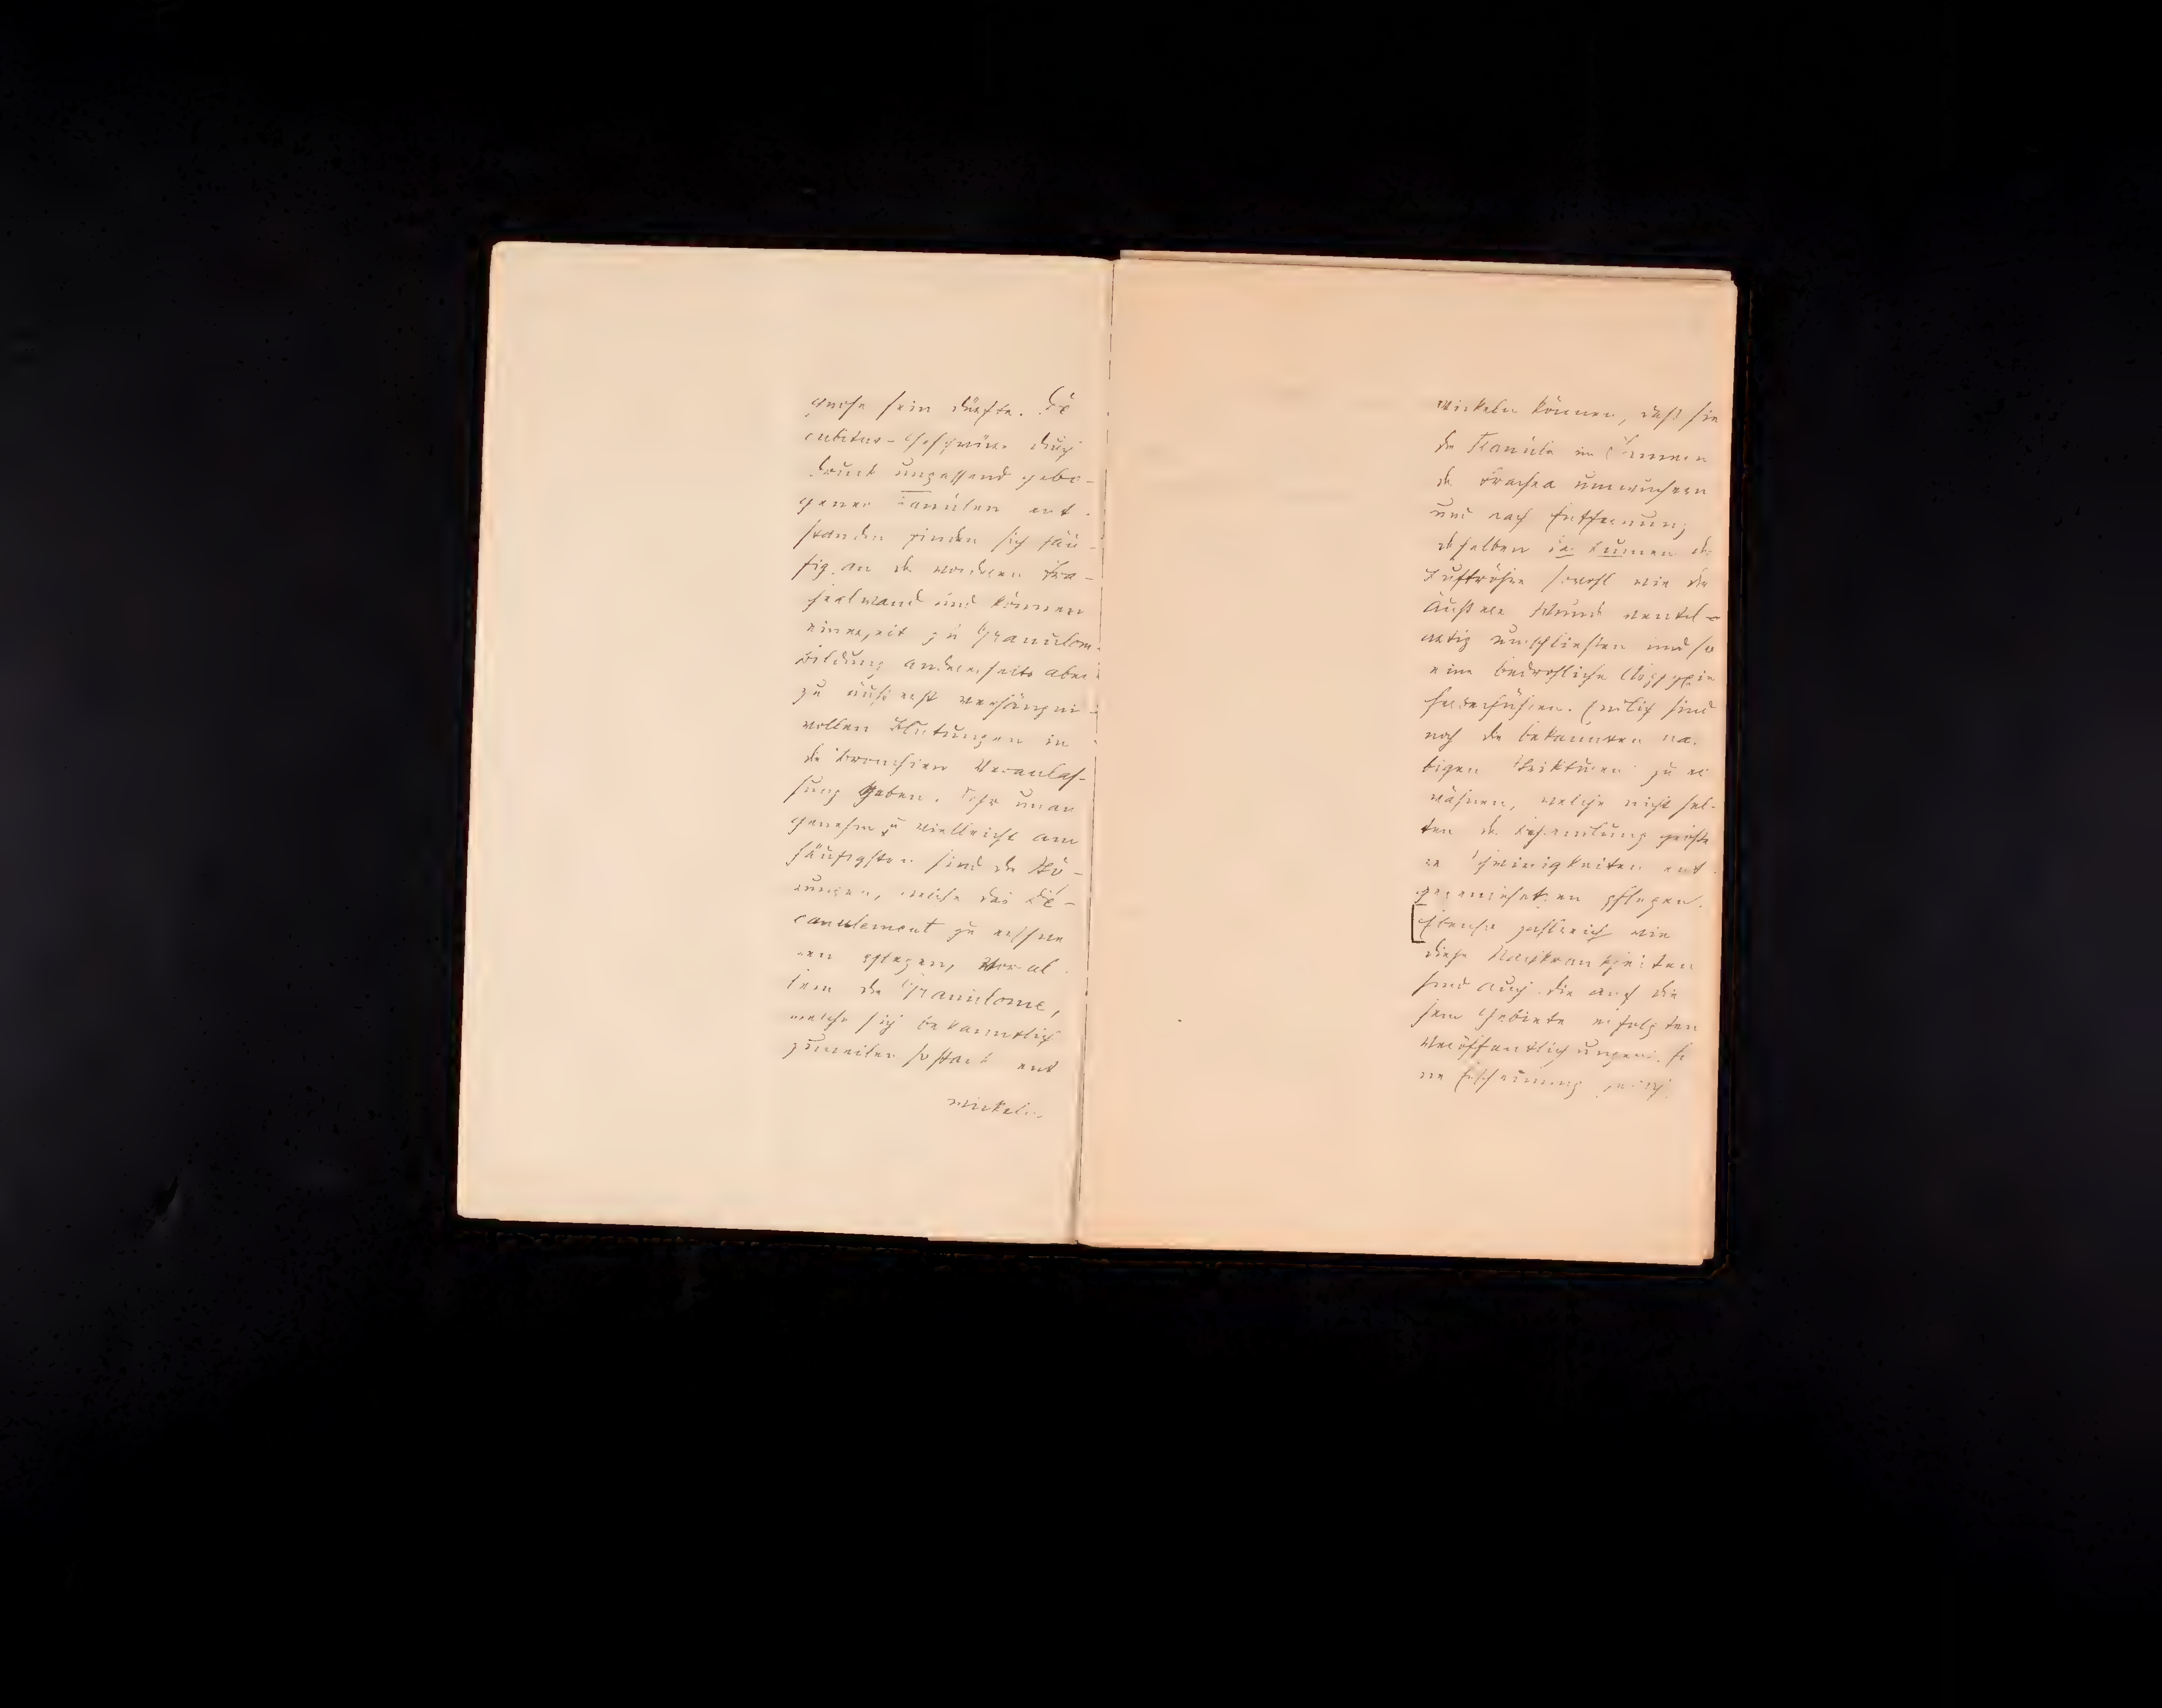 gnose sein dürfte. De
cubitus-Geschwüre durch
Druck unpassend gebo-
gener Kanülen ent-
standen finden sich häu-
fig an der vorderen Tra-
chealwand und können
einerseit zu Granulom-
bildung andererseits aber
zu äußerst verhängnis-
vollen Blutungen in
die Bronchien Veranlas-
sung geben. Sehr unan
genehm u vielleicht am
häufigsten sind die Stö-
rungen, welche das De-
canulement zu erschwe
ren pflegen, vor al
lem die Granulome,
welche sich bekanntlich
zuweilen so stark ent
wickeln
wickeln können, daß sie
die Kanüle im Innern
der Trachea umwuchern
und nach Entfernung
derselben das Lumen der
Luftröhre sowohl wie die
äußere Wunde ventil-
artig umschließen und so
eine bedrohliche Dyspnoe
herbeiführen. Endlich sind
noch die bekannten nar
bigen Strikturen zu er
wähnen, welche nicht sel-
ten der Behandlung größe
re Schwierigkeiten ent
gegenzusetzen pflegen.
[Ebenso zahlreich wie
diese Nachkrankheiten
sind auch die auf die
sem Gebiete erfolgten
Veröffentlichungen. Ei
ne Erscheinung jedoch